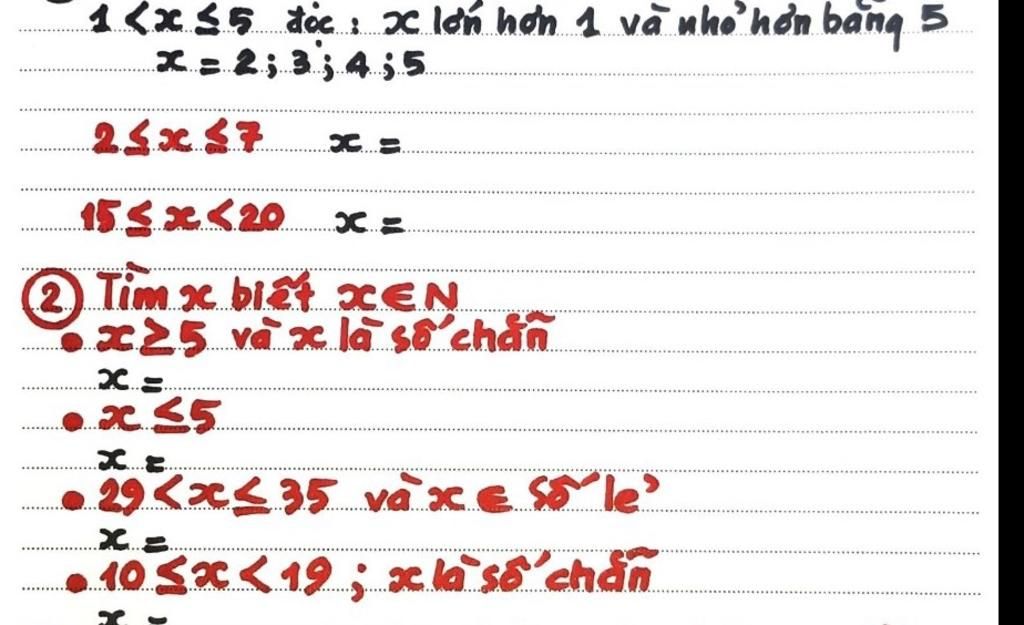 1 < x ≤ 5 đọc : x lớn hơn 1 và nhỏ hơn bằng 5
x = 2 ; 3 ; 4 ; 5
2 ≤ x ≤ 7 x =
15 ≤ x < 20 x =
② Tìm x biết x ∈ N
• x ≥ 5 và x là số chẵn
x =
• x ≤ 5
x =
• 29 < x ≤ 35 và x ∈ số lẻ
x =
• 10 ≤ x < 19 ; x là số chẵn
x =